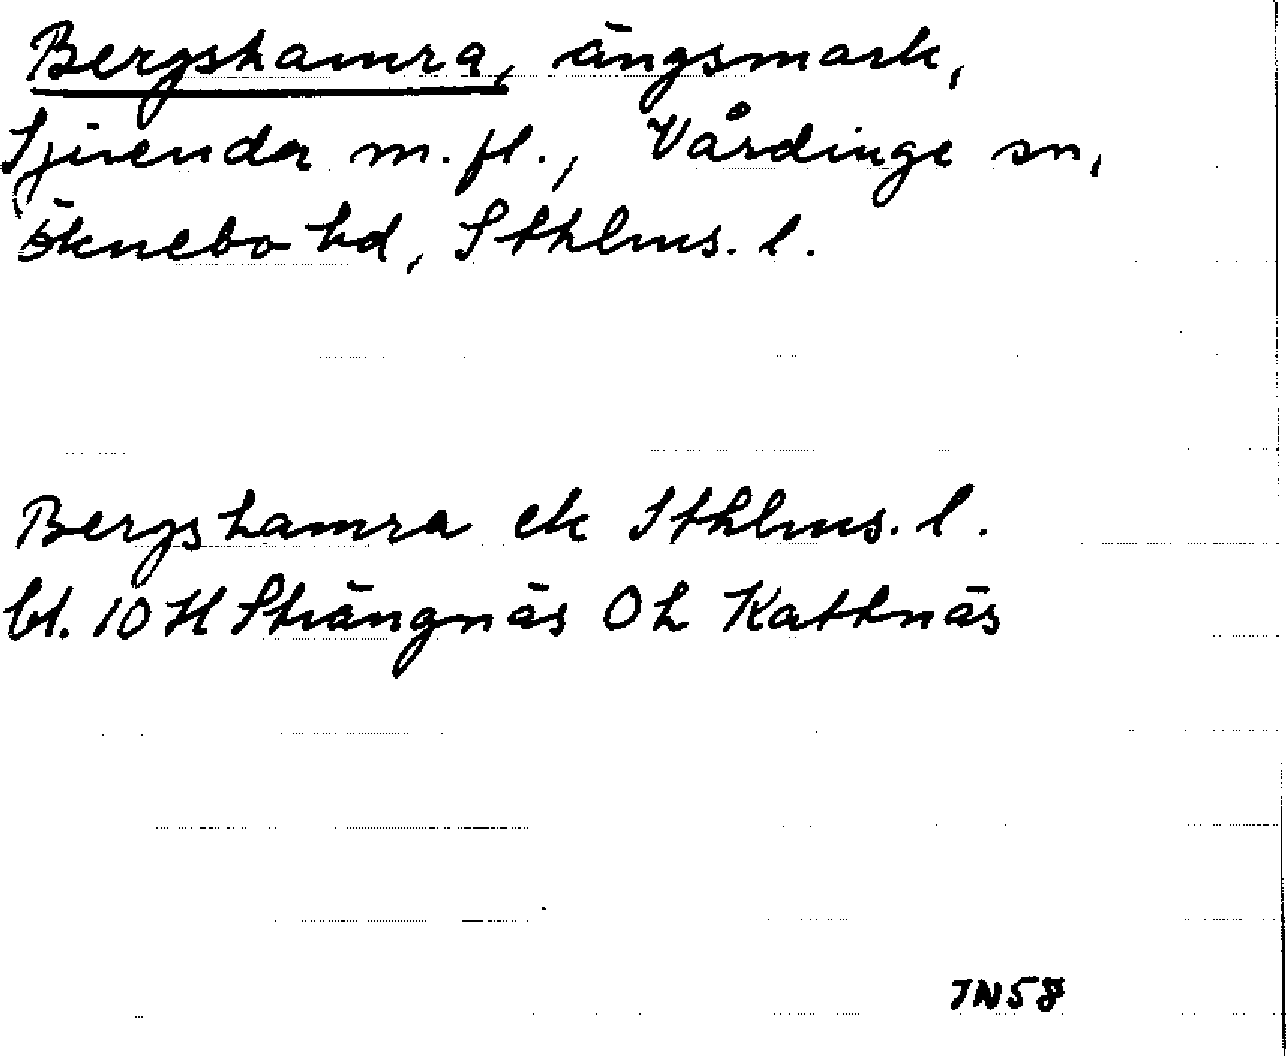 Bergshamra, ängsmark,
Sjuenda m.fl., Vårdinge sn,
Öknebo hd, Sthlms. l.
Bergshamra ek Sthlms. l.
bl. 10 H Strängnäs Oh Kattnäs
JN58